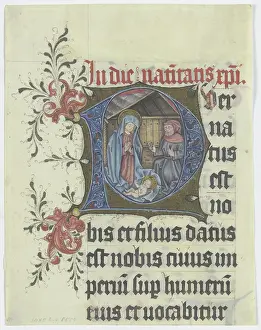 In die natiuitatis xp̄i.
Puer
na
tus
est
no
bis et filius datus
est nobis cuius im
periū sup humerū
eius et vocabitur